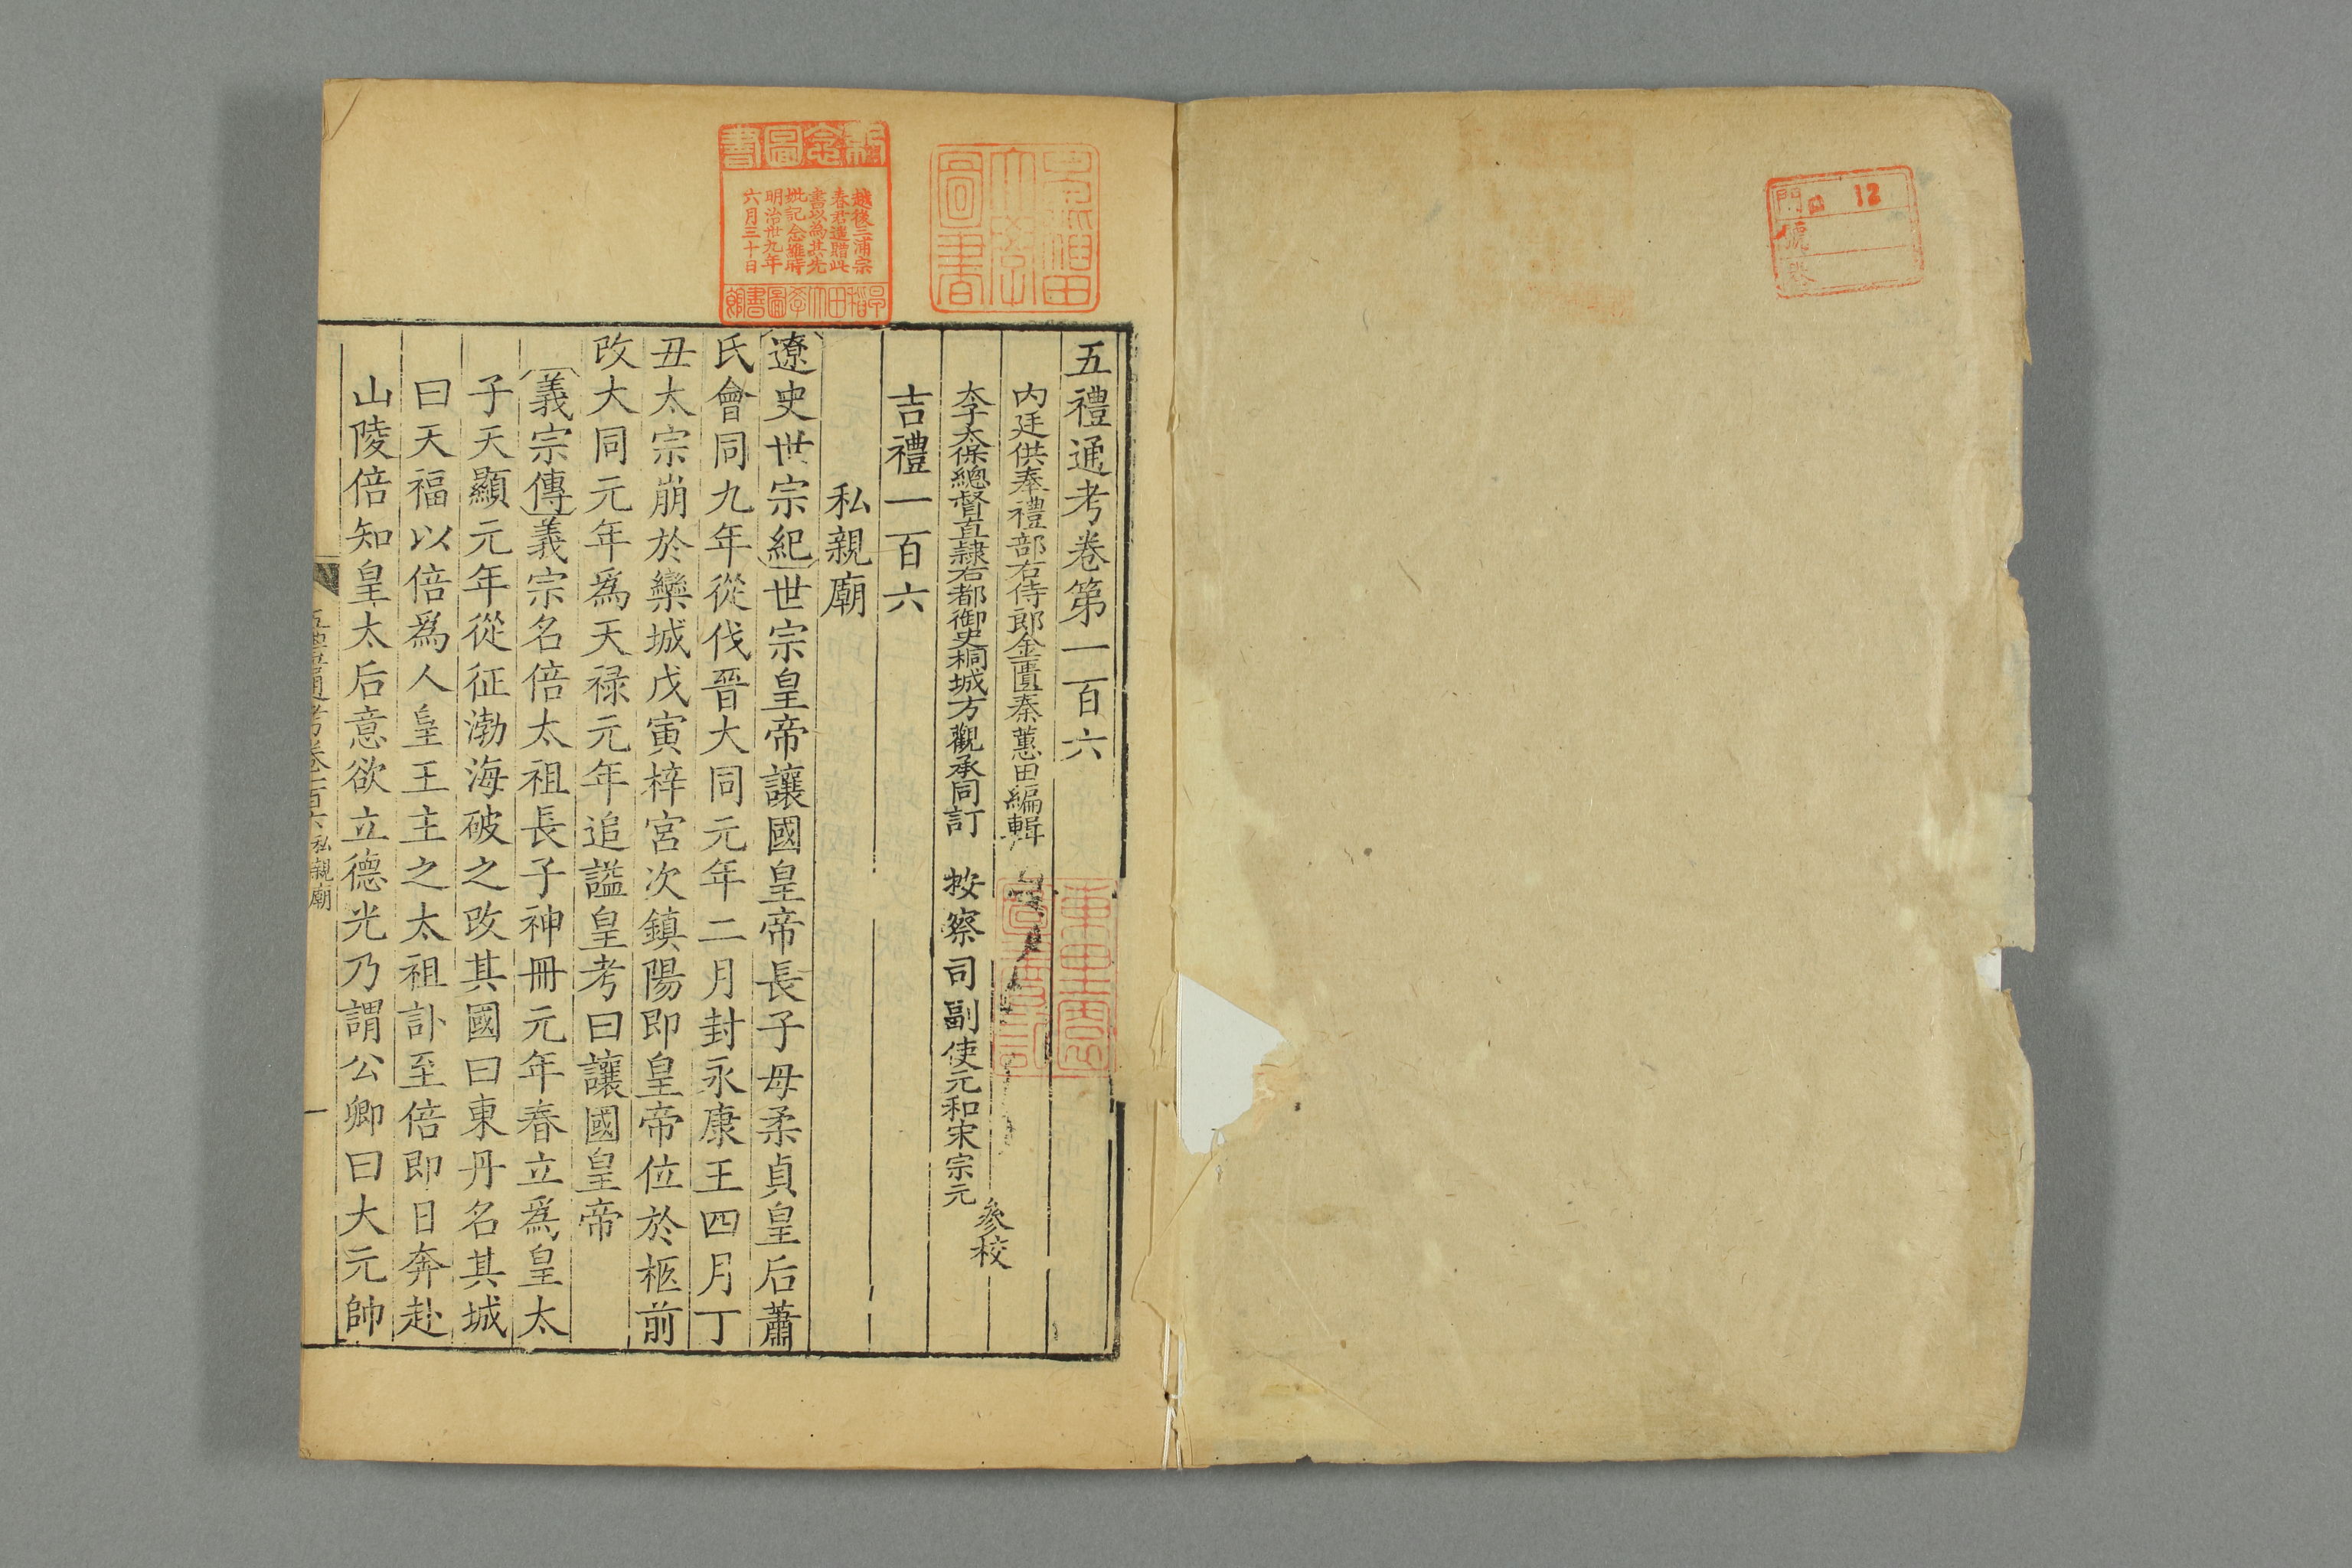 門 12
號
五禮通考卷第一百六
内廷供奉禮部右侍郎金匱秦蕙田編輯
太子太保總督直隸右都御史桐城方觀承同訂 按察司副使元和宋宗元
參校
吉禮一百六
私親廟
遼史世宗紀世宗皇帝讓國皇帝長子母柔貞皇后蕭
氏會同九年從伐晉大同元年二月封永康王四月丁
丑太宗崩於欒城戊寅梓宮次鎮陽即皇帝位於柩前
改大同元年爲天禄元年追諡皇考曰讓國皇帝
義宗傳義宗名倍太祖長子神冊元年春立爲皇太
子天顯元年從征渤海破之改其國曰東丹名其城
曰天福以倍爲人皇王主之太祖訃至倍即日奔赴
山陵倍知皇太后意欲立德光乃謂公卿曰大元帥
五禮通考卷一百六 私親廟
一
早稻田
大學
圖書
紀念圖書
越後三浦宗
春君遺贈此
書以為其先
妣記念維時
明治卅九年
六月三十日
早稻田大學圖書館